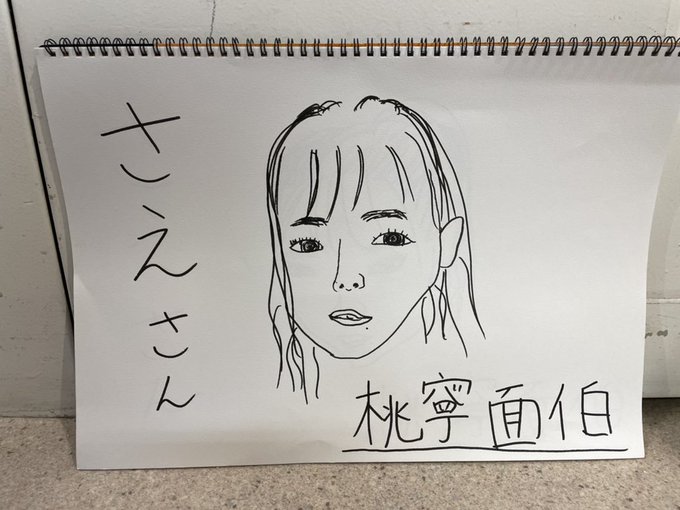 さえさん
桃寧面伯